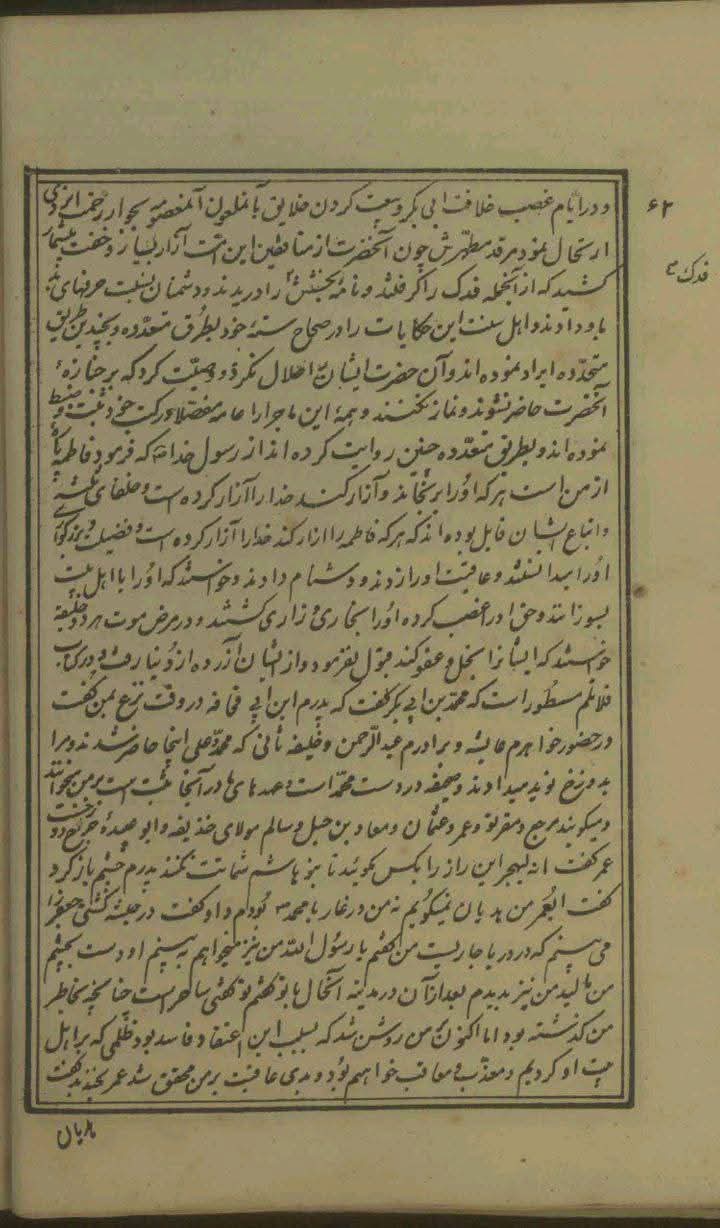 و در ایام غصب خلافت ابی بکر و بیعت کردن خلایق با آن ملعون آن معصومه بجوار رحمت ایزدی
ارتحال نمود مرقد مطهرش چون آنحضرت از منافقین این امت آزار بسیار و خفت بیشمار
کشید که از آنجمله فدک را گرفتند و نامهٔ بخشش را دریدند و دشمنان بنسبت حرفهای
باو دادند و اهل سنت این حکایات را در صحاح ستهٔ خود بطرق متعدّده و بچندین طریق
متجدّده ایراد نموده اند و آن حضرت ایشانرا احلال نکرد و وصیّت کرد که بر جنازهٔ
آنحضرت حاضر نشوند و نماز نکنند و همهٔ این ماجرا را عامه مفصّلا در کتب خود ثبت و ضبط
نموده اند و بطریق متعدّده چنین روایت کرده اند از رسول خدا که فرمود فاطمه پاره
از من است هر که او را برنجاند و آزار کند خدا را آزار کرده است و خلفای ثلثه
و اتباع ایشان قایل بوده اند که هر که فاطمه را ازار کند خدا را آزار کرده است و فضیلت و بزرگواری
او را میدانستند و عاقبت او را زدند و دشنام دادند و خواستند که او را با اهل بیت
بسوزانند و حق او را غصب کرده او را بخاری و زاری کشتند و در مرض موت هر دو خلیفه
خواستند که ایشانرا بحل و عفو کند قبول نفرمود و از ایشان آزرده از دنیا رفت و در کتاب
مسطور است که محمد بن ابی بکر گفت که پدرم ابن ابی قحافه در وقت نزع بمن گفت
در حضور خواهرم عایشه و برادرم عبدالرّحمن و خلیفه ثانی که محمد و علی اینجا حاضر شدند و مرا
بدوزخ نوید میدادند و صحیفه در دست محمد است و عهدهای ما در آنجا ثبت است بر من میخوانند
و میکویند مرجع و مقر تو و عمر و عثمان و معاد بن جبل و سالم مولای حذیفه و ابو عبیدهٔ جراح دوزخست
عمر گفت انه لیهجر این راز را بکس مگوئید تا بنو هاشم شماتت نکنند پدرم چشم باز کرد
گفت ایعمر من هذیان نمیگویم نه من در غار با محمد بودم و او گفت در حبشه کشتی جعفر را
می بینم که در دریا جاریست من گفتم یا رسول الله من نیز میخواهم به بینم او دست بچشم
من مالید من نیز بدیدم بعد از آن در مدینه آنحال با تو گفتم تو گفتی ساحر است چنانچه بخاطر
من گذشته بود اما اکنون بمن روشن شد که بسبب این اعتقاد فاسد بود ظلمی که بر اهل
بیت او کردیم و معذّب و معاقب خواهیم بود و بدی عاقبت بر من محقق شد عمر بخندید گفت
هذیان
۶۲
فدک